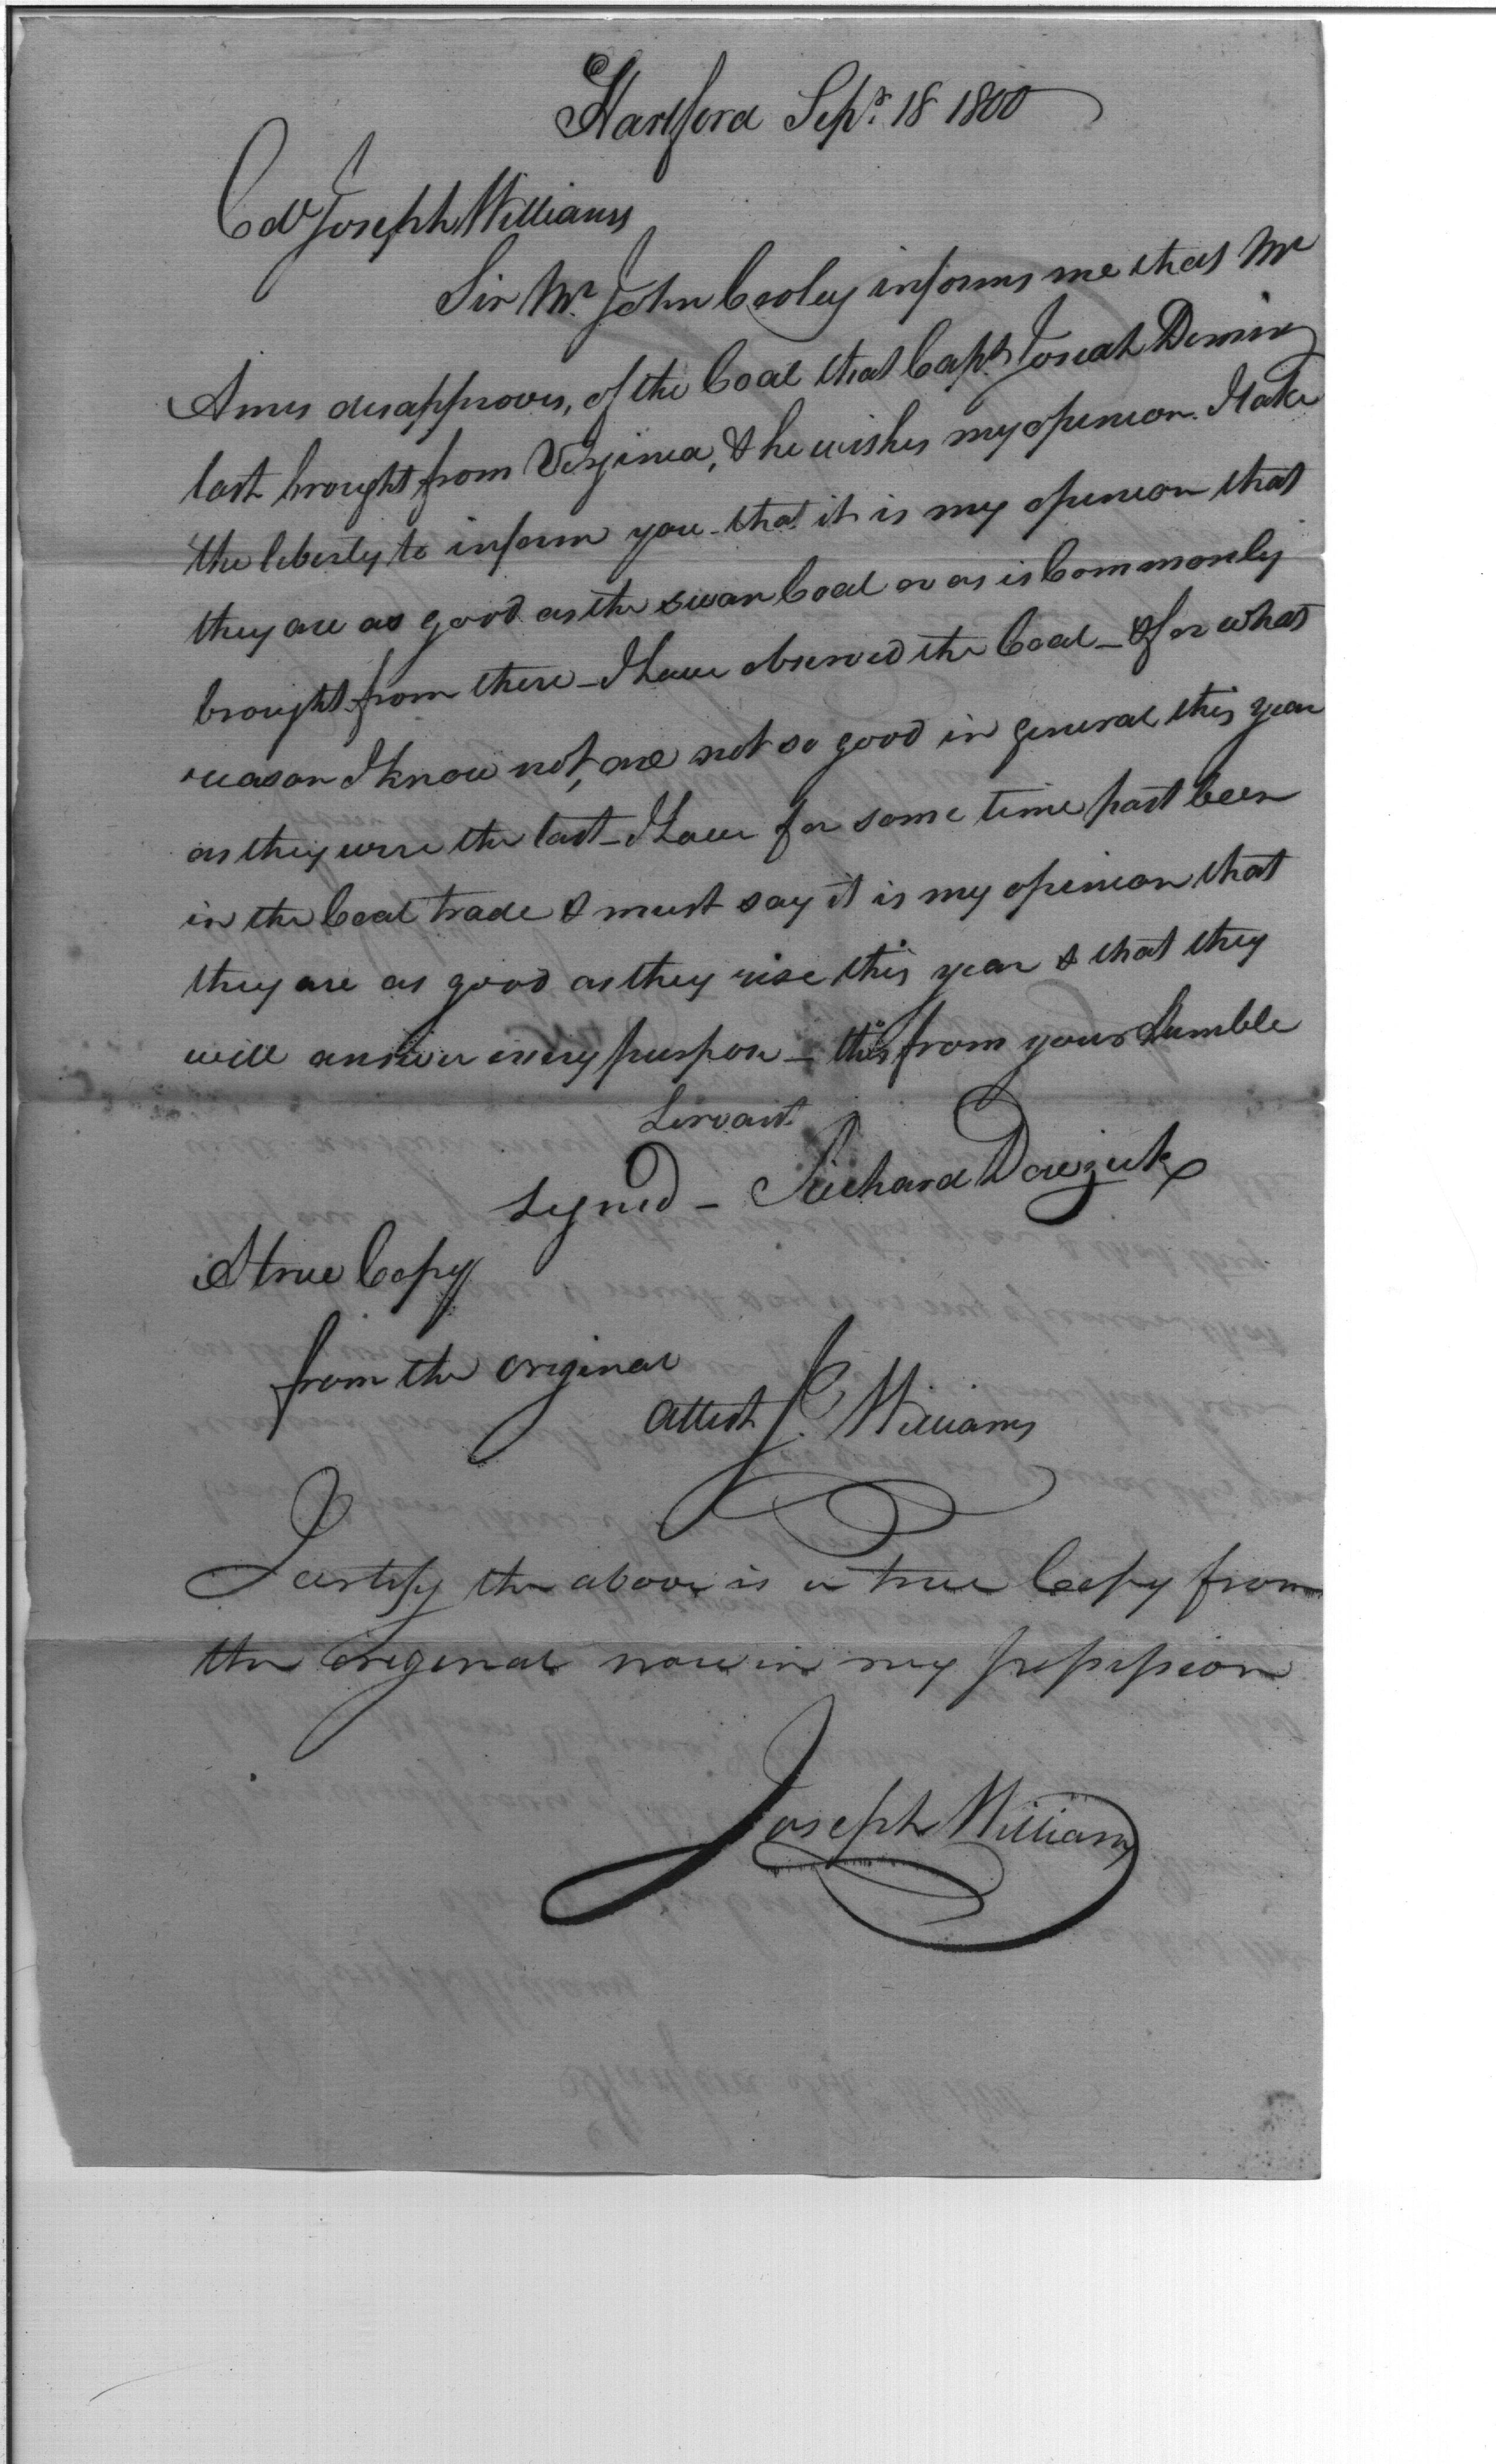 Hartford Sepr. 18 1800
Col Joseph Williams
Sir Mr. John Cooley informs me that Mr
Ames disapproves, of the Coal that Capt Josiah Deming
last brought from Virginia, & he wishes my opinion. I take
the liberty to inform you - that it is my opinion that
they are as good as the swan Coal or as is Commonly
brought from there - I have observed the Coal - & for what
reason I know not, are not so good in general this year
as they were the last - I have for some time past been
in the Coal trade & must say it is my opinion that
they are as good as they rise this year & that they
will answer every purpose - this from your Humble
Servant
signed - Richard
A true Copy
from the original
attest J. Williams
I certify the above is a true Copy from
the original now in my possession
Joseph Williams